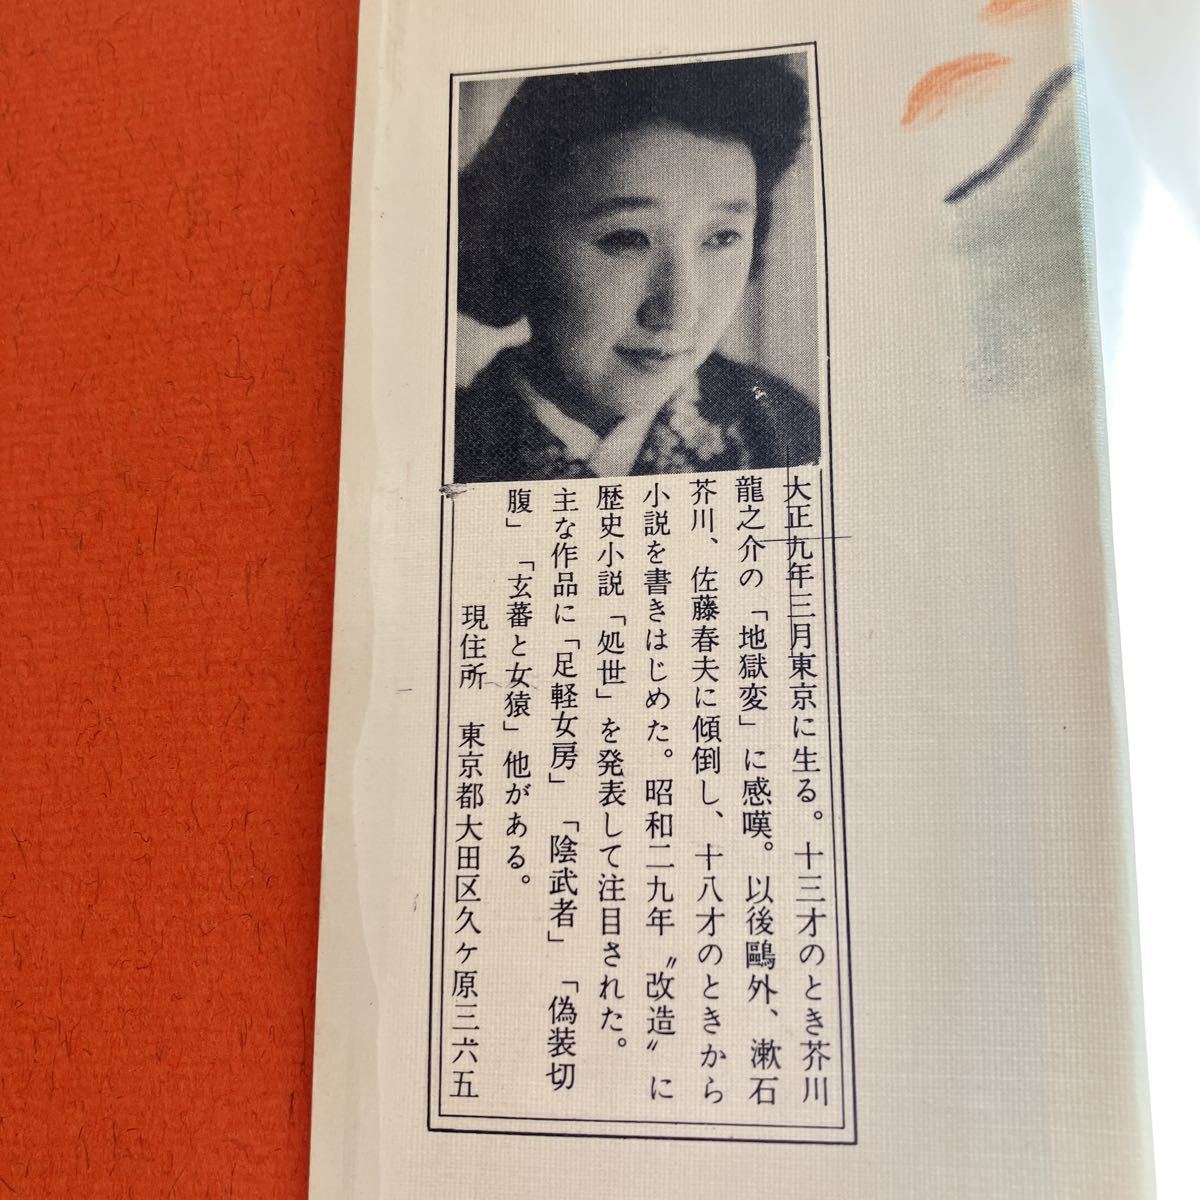 大正九年三月東京に生る。十三才のとき芥川
龍之介の「地獄変」に感嘆。以後鷗外、漱石
芥川、佐藤春夫に傾倒し、十八才のときから
小説を書きはじめた。昭和二九年〝改造〟に
歴史小説「処世」を発表して注目された。
主な作品に「足軽女房」「陰武者」「偽装切
腹」「玄蕃と女猿」他がある。
現住所　東京都大田区久ヶ原三六五